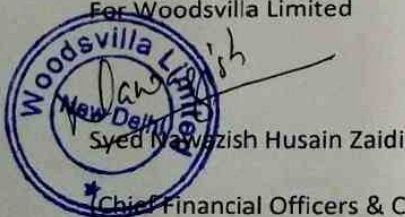 For Woodsvilla Limited
Woodsvilla Limited
New Delhi
Syed Nawazish Husain Zaidi
(Chief Financial Officers & C